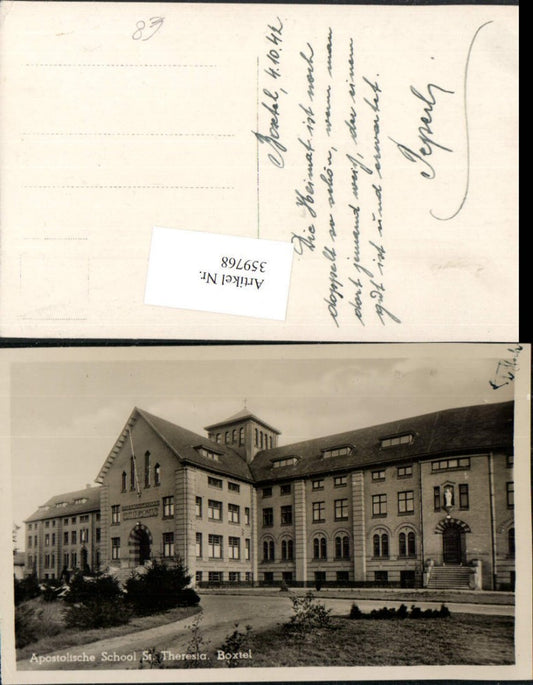 83
Boxtel, 4.10.42
Die Heimat ist noch
doppelt so schön, wenn man
dort jemand weiß, der einen
gut ist und erwartet.
Artikel Nr.
359768
Apostolische School St. Theresia. Boxtel